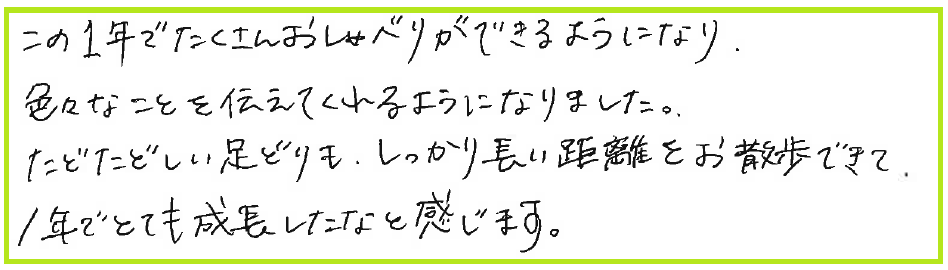 この1年でたくさんおしゃべりができるようになり、
色々なことを伝えてくれるようになりました。
たどたどしい足どりも、しっかり長い距離をお散歩できて、
1年でとても成長したなと感じます。